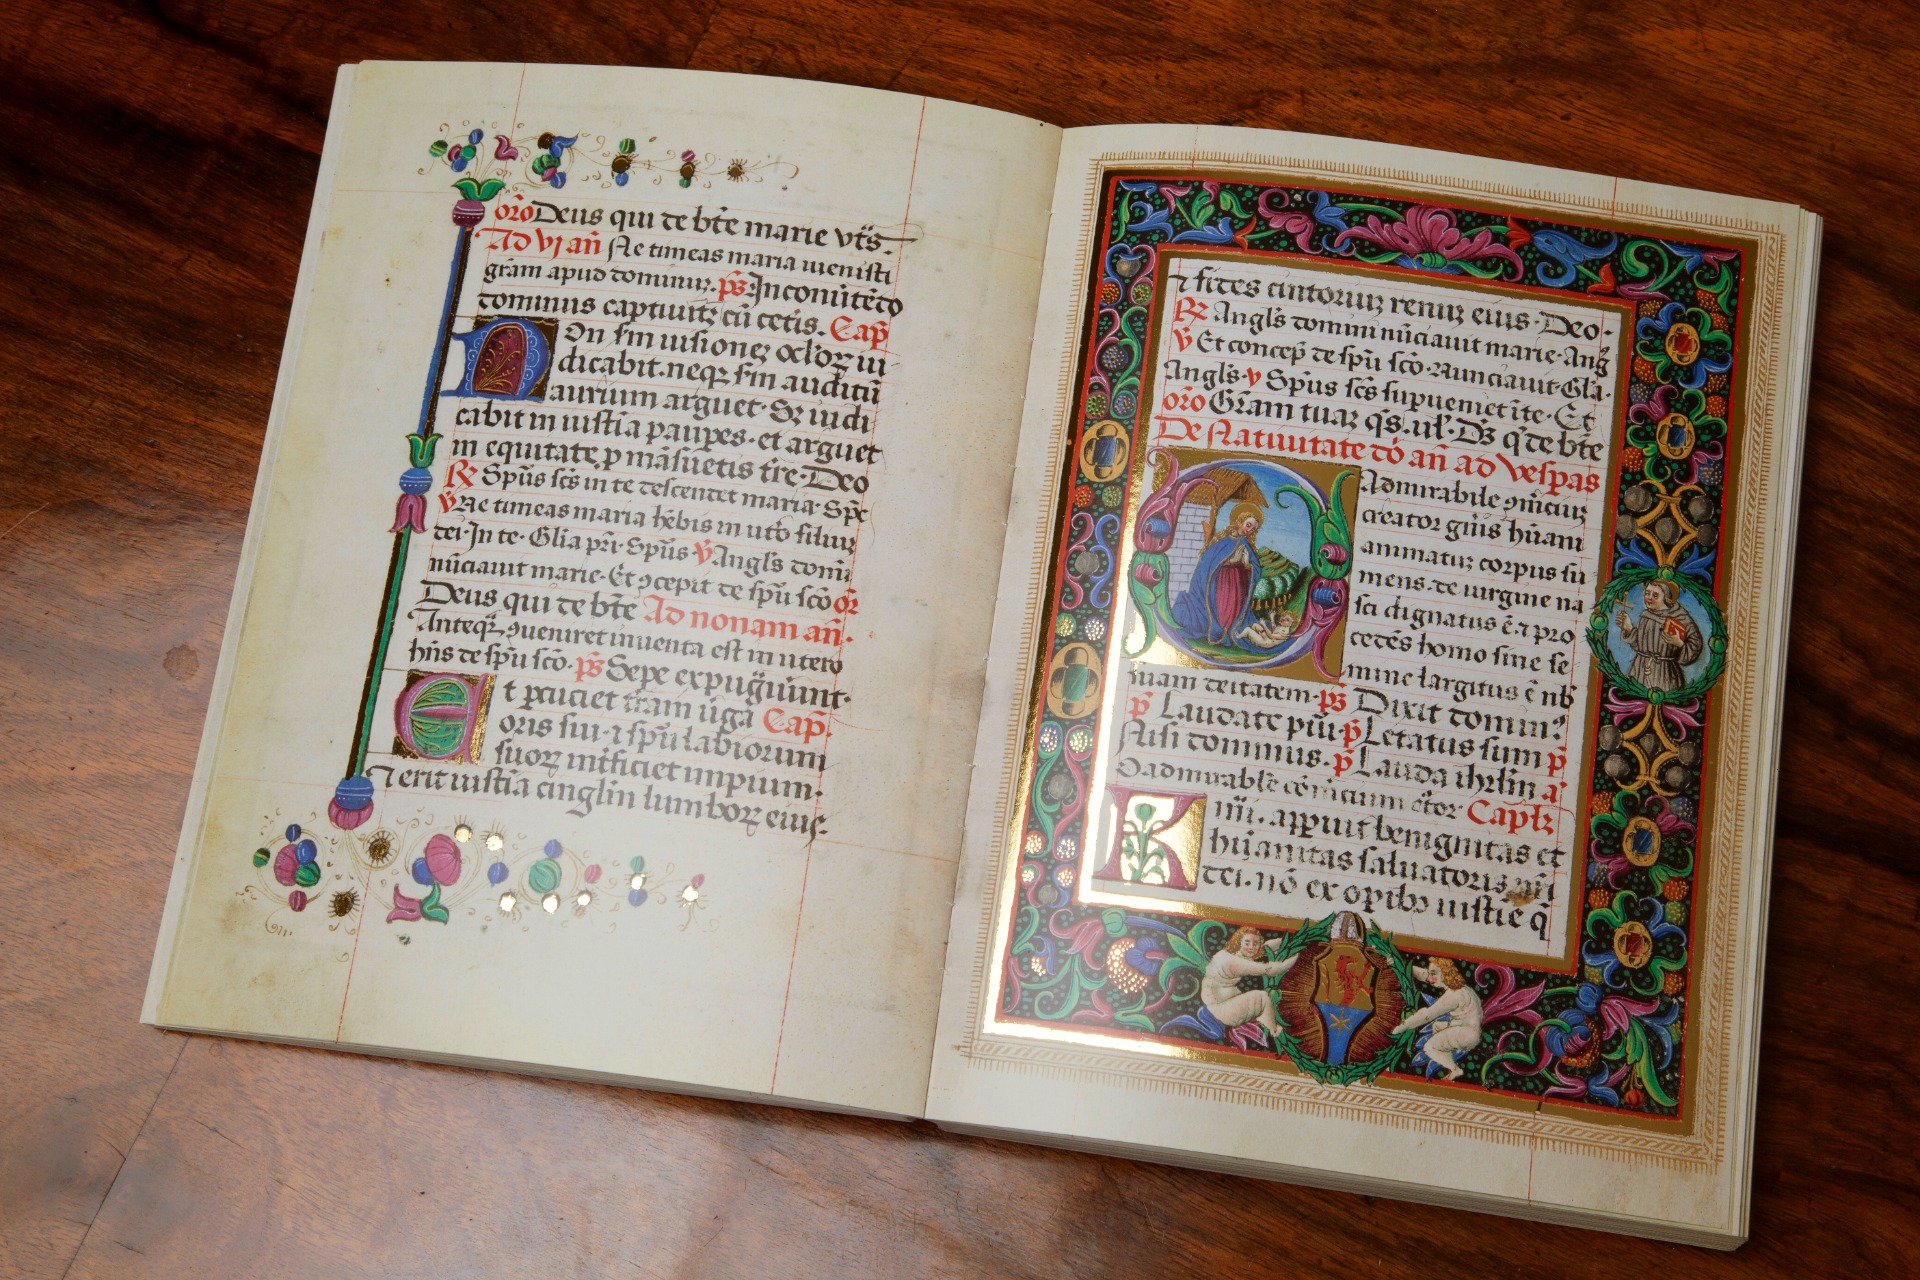 orō Deus qui de bt̄e marie vt̄s
Ad vj an̄ Ne timeas maria inuenisti
gr̄am apud dominuz. ps̄ In conuertēdo
dominus captiuitz cū cetis. Cap̄
Non s̄m uisionez oclōꝝ iu
dicabit. neqꝫ s̄m auditū
aurium arguet. Sꝫ iudi
cabit in iusticia paupes. et arguet
in equitate p̱ māsuetis tr̄e. Deo
℟ Sp̄us sc̄s in te descendet maria. Spe
℣ Ne timeas maria hēbis in utō filiuz
dei. In te. Gl̄ia pr̄i. Sp̄us ℣ Angl̄s domī
nūciauit marie. Et ꝯcepit de sp̄u sc̄o or̄
Deus qui de bt̄e Ad nonam an̄.
Anteqꝫ ꝯueniret inuenta est in utero
hn̄s de sp̄u sc̄o. ps̄ Sepe expugūunt.
Et p̱cuciet tr̄am uīga Cap̄.
oris sui. ⁊ sp̄u labiorum
suoꝝ interficiet impium.
⁊ erit iusticia cinglm̄ lumboꝝ eius.
⁊ fides cinctoriuz renuz eius. Deo.
℟ Angl̄s domini nūciauit marie. Anḡ
℣ Et concep̄ de sp̄u sc̄o. Nunciauit. Gl̄a.
Angl̄s. ℣ Sp̄us sc̄s sup̱ueniet ī te. Et
orō Gr̄am tuaz q̄s. ul̄. Ds̄ q̄ de bt̄e
De Natiuitate dō an̄ ad vesp̱as
O Admirabile ꝯmēciuz
creator gn̄is hūani
animatuz corpus su
mens. de uirgine na
sci dignatus ē. ⁊ pro
cedēs homo sine se
mine largitus ē nb̄
suam deitatem. ps̄ Dixit domin?
p̄ Laudate pūi. p̄ Letatus sum p̄
Nisi dominus. p̄ Lauda ihrl̄m a
O admirable cōmcium c̄tor Capl̄z
Kr̄mi. ap̱puit benignitas et
hūanitas saluatoris nr̄i
dei. nō ex opibꝫ iusticie q̄